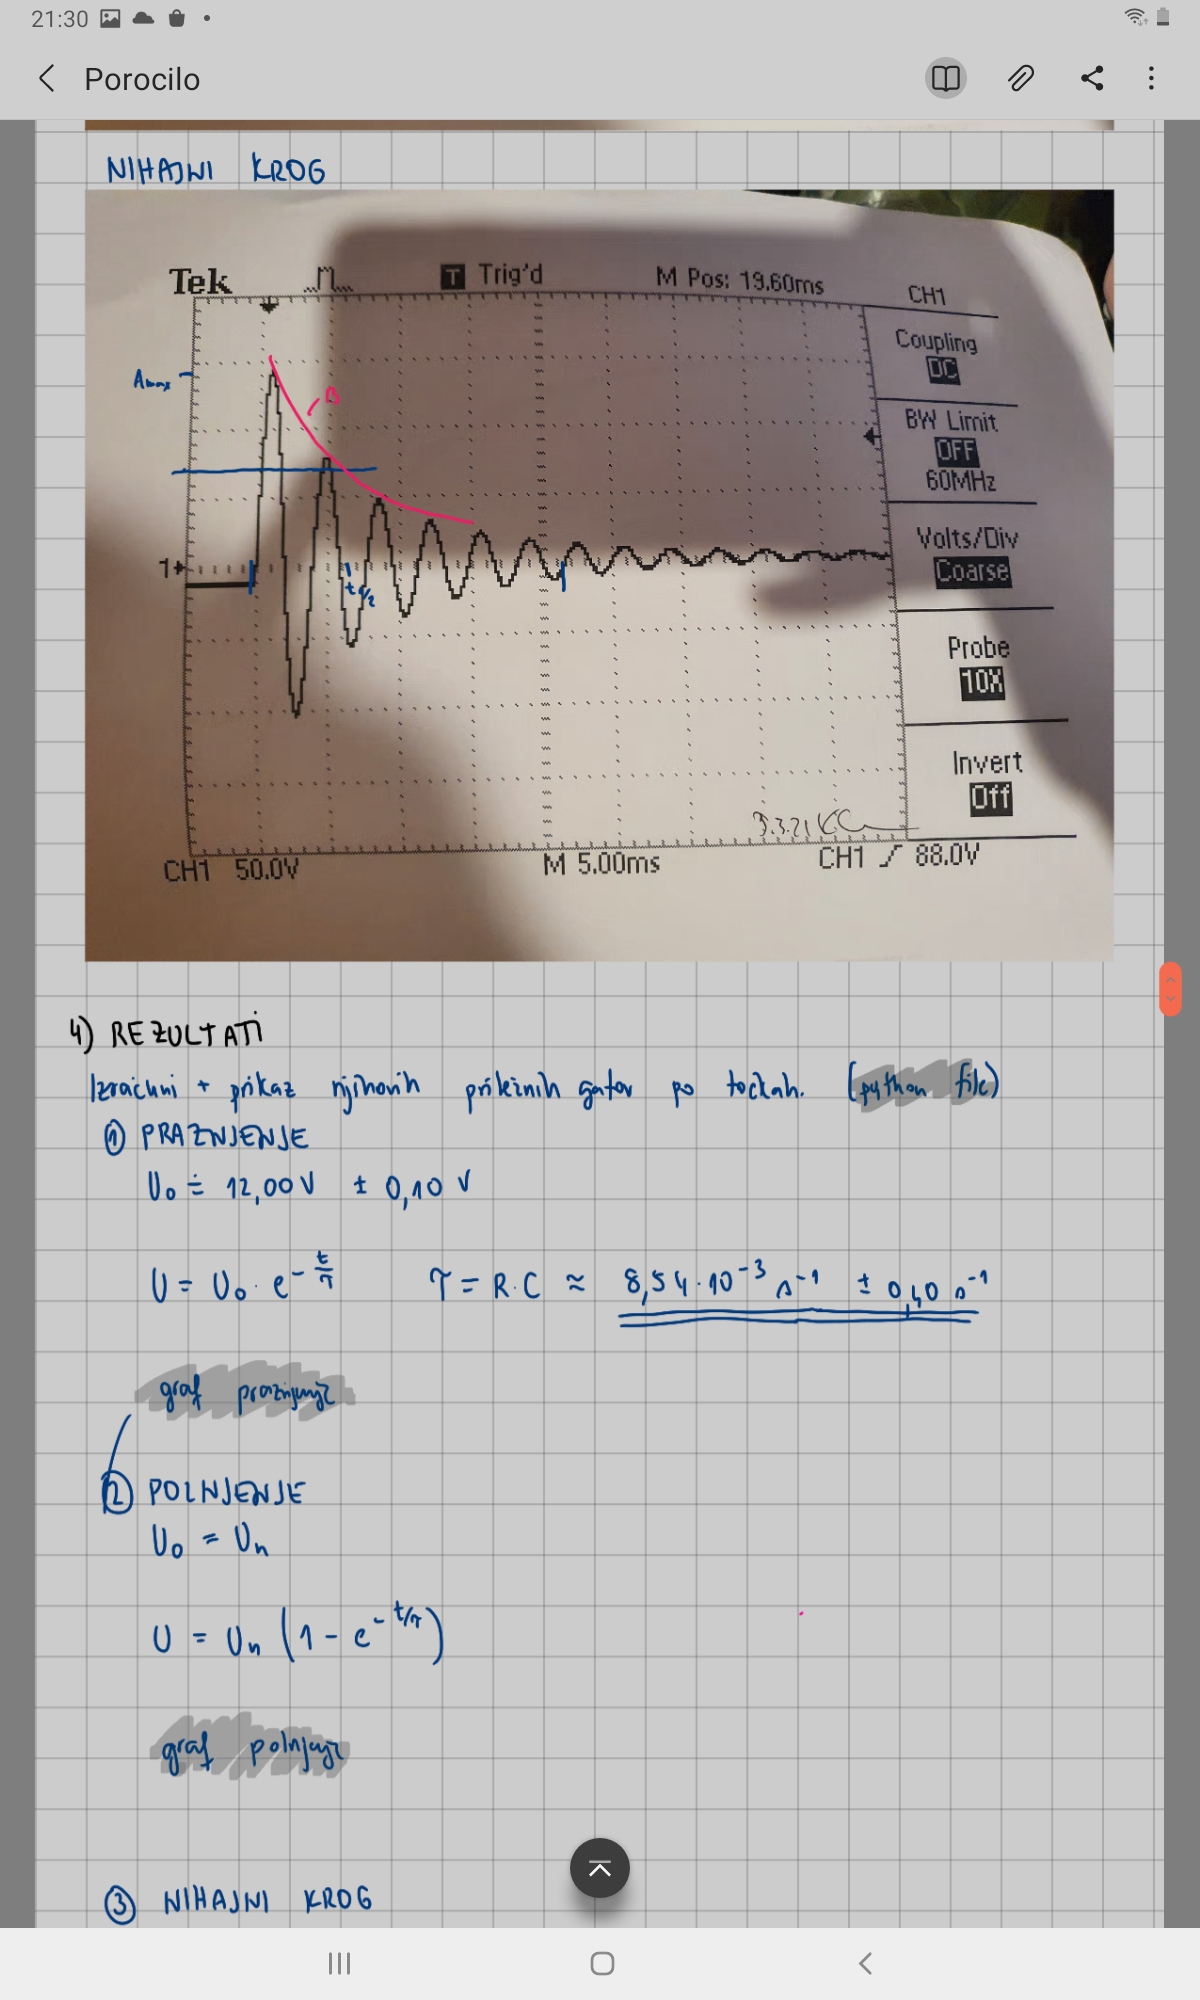 21:30
Porocilo
NIHAJNI KROG
Tek
T Trig'd
M Pos: 19.60ms
CH1
Coupling
DC
BW Limit
OFF
60MHz
Volts/Div
Coarse
Probe
10X
Invert
Off
Amax
β
1
t1/2
CH1 50.0V
M 5.00ms
CH1 88.0V
4) REZULTATI
Izračuni + prikaz njihovih po točkah. (python file)
① PRAZNJENJE
U₀ ≐ 12,00 V ± 0,10 V
U = U₀ · e^(-t/τ) τ = R.C ≈ 8,54·10⁻³ s⁻¹ ± 0,40 s⁻¹
graf praznjenja
② POLNJENJE
U₀ = Uₙ
U = Uₙ (1 - e^(-t/τ))
graf polnjenja
③ NIHAJNI KROG